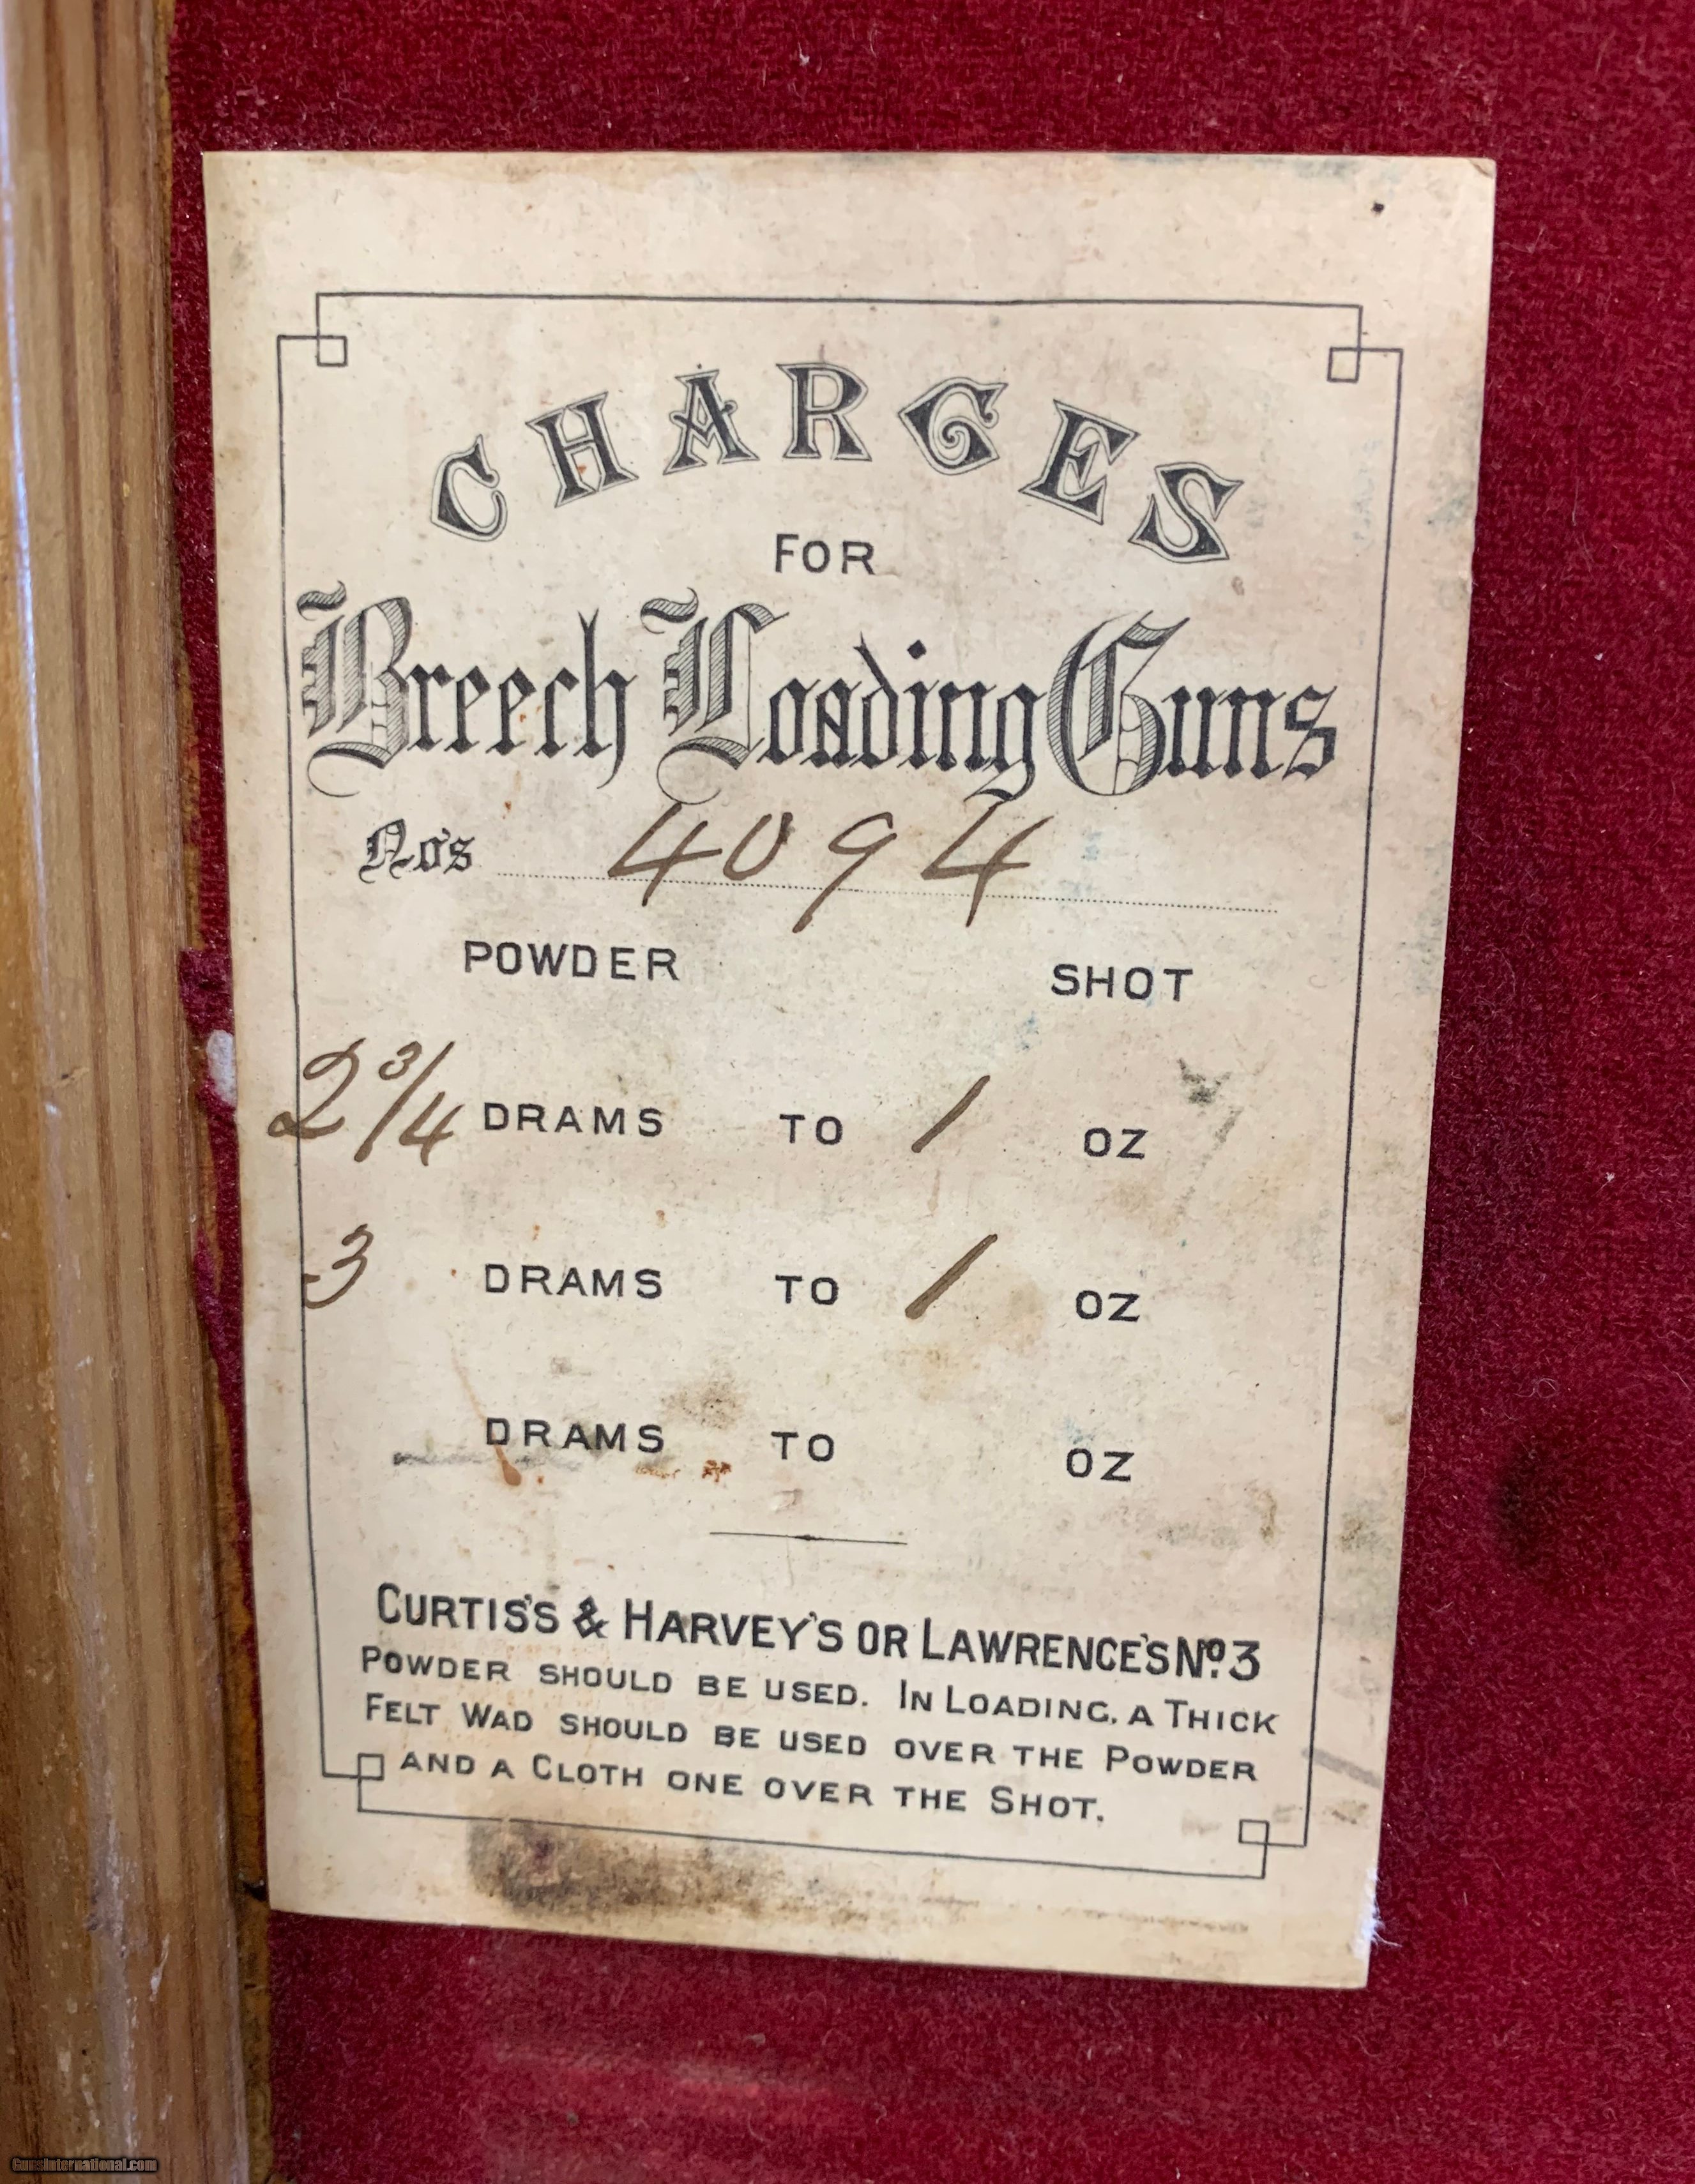 CHARGES
FOR
Breech Loading Guns
No's 4094
POWDER SHOT
2 3/4 DRAMS TO 1 OZ
3 DRAMS TO 1 OZ
DRAMS TO OZ
CURTIS'S & HARVEY'S OR LAWRENCE'S No. 3
POWDER SHOULD BE USED. IN LOADING, A THICK
FELT WAD SHOULD BE USED OVER THE POWDER
AND A CLOTH ONE OVER THE SHOT.
GunsInternational.com